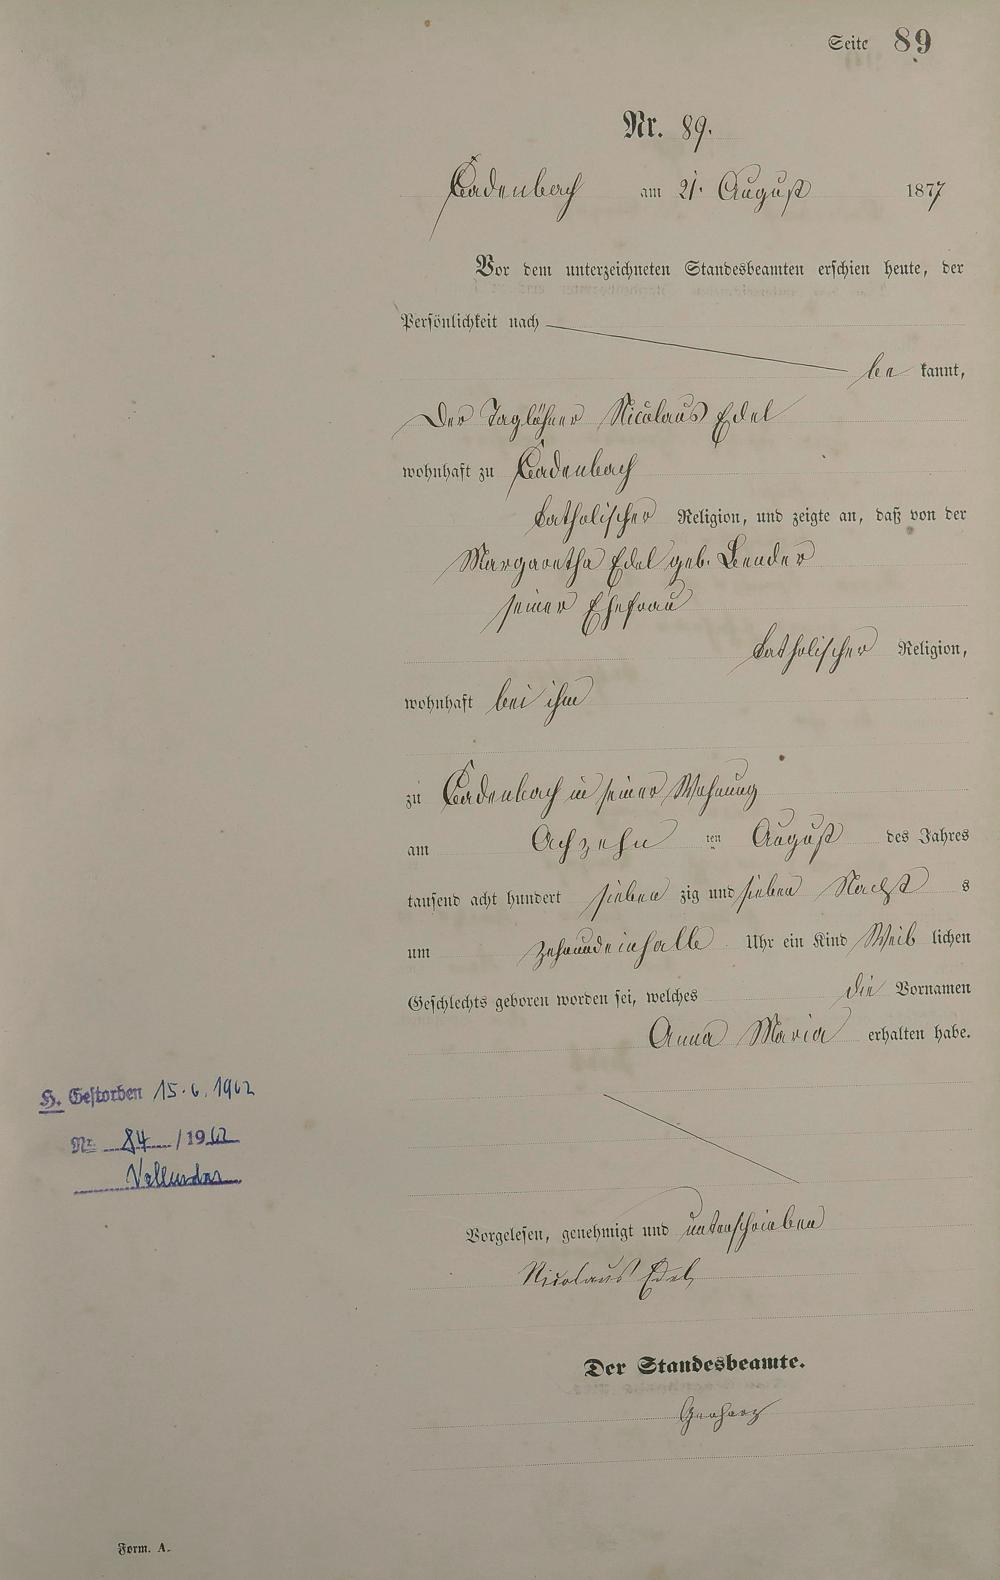 Seite 89
Nr. 89.
Cadenbach am 21. August 1877
Vor dem unterzeichneten Standesbeamten erschien heute, der
Persönlichkeit nach
be kannt,
Der Taglöhner Nicolaus Edel
wohnhaft zu Cadenbach
katholischer Religion, und zeigte an, daß von der
Margaretha Edel geb. Bender
seiner Ehefrau
katholischer Religion,
wohnhaft bei ihm
zu Cadenbach in seiner Wohnung
am Achzehn ten August des Jahres
tausend acht hundert sieben zig und sieben Nacht s
um zehnundeinhalb Uhr ein Kind Weib lichen
Geschlechts geboren worden sei, welches die Vornamen
Anna Maria erhalten habe.
H. Gestorben 15.6.1962
Nr. 84 / 1962
Vallendar
Vorgelesen, genehmigt und unterschrieben
Nicolaus Edel
Der Standesbeamte.
Gerharz
Form. A.